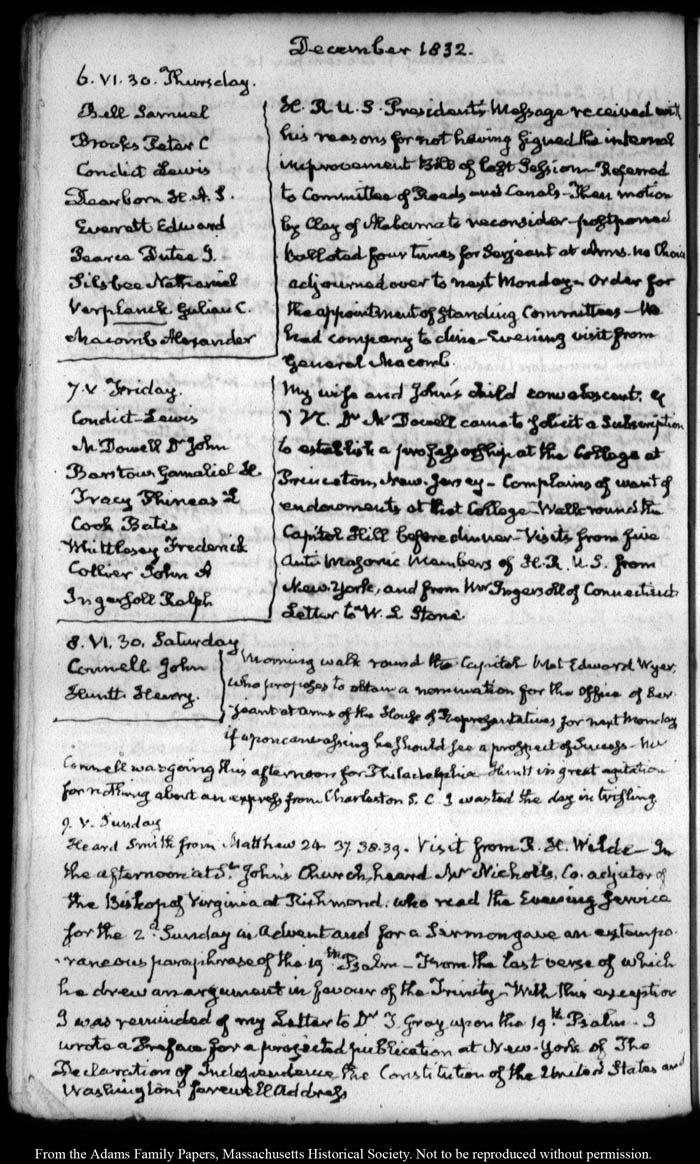 December 1832.
6. VI. 30. Thursday.
Bell Samuel
Brooks Peter C
Condict Lewis
Dearborn H. A. S.
Everett Edward
Pearce Dutee J.
Silsbee Nathaniel
Verplanck Gulian C.
Macomb Alexander
H. R U. S. President's Message received with
his reasons for not having signed the internal
improvement Bill of last Session — Referred
to Committee of Roads and Canals — Then motion
by Clay of Alabama to reconsider — postponed
balloted four times for Serjeant at Arms. no Choice
adjourned over to next Monday — Order for
the appointment of Standing Committees — We
had company to dine — Evening visit from
General Macomb
7. V. Friday.
Condict Lewis
McDowell Dr John
Barstow Gamaliel H.
Tracy Phineas L
Cook Bates
Whittlesey Frederick
Collier John A
Ingersoll Ralph
My wife and John's child convalescent.
Dr McDowell came to solicit a Subscription
to establish a professorship at the College at
Princeton, New-Jersey — Complains of want of
endowments at that College — Walk round the
Capitol Hill before dinner — Visits from five
Anti Masonic Members of H. R. U. S. from
New-York, and from Mr Ingersoll of Connecticut
Letter to W. L Stone.
8. VI. 30. Saturday
Connell John
Huntt Henry.
Morning walk round the Capitol Met Edward Wyer,
who proposes to obtain a nomination for the Office of Ser-
jeant at arms of the House of Representatives for next Monday
if upon canvassing he should see a prospect of Success — Mr
Connell was going this afternoon for Philadelphia Huntt in great agitation
for nothing about an express from Charleston S. C. I wasted the day in trifling
9. V. Sunday
Heard Smith from Matthew 24. 37. 38. 39. Visit from R. H. Wilde — In
the afternoon at St. John's Church, heard Mr Nicholls, Co. adjutor of
the Bishop of Virginia at Richmond. who read the Evening Service
for the 2d Sunday in Advent and for a Sermon gave an extempo-
raneous paraphrase of the 19th Psalm — From the last verse of which
he drew an argument in favour of the Trinity — With this exception
I was reminded of my Letter to Dr T. Gray upon the 19th Psalm — I
wrote a Preface for a projected publication at New-York of The
Declaration of Independence the Constitution of the United States and
Washington's farewell Address
From the Adams Family Papers, Massachusetts Historical Society. Not to be reproduced without permission.